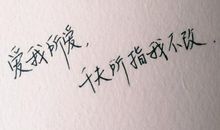 爱我所爱，
千夫所指我不改．